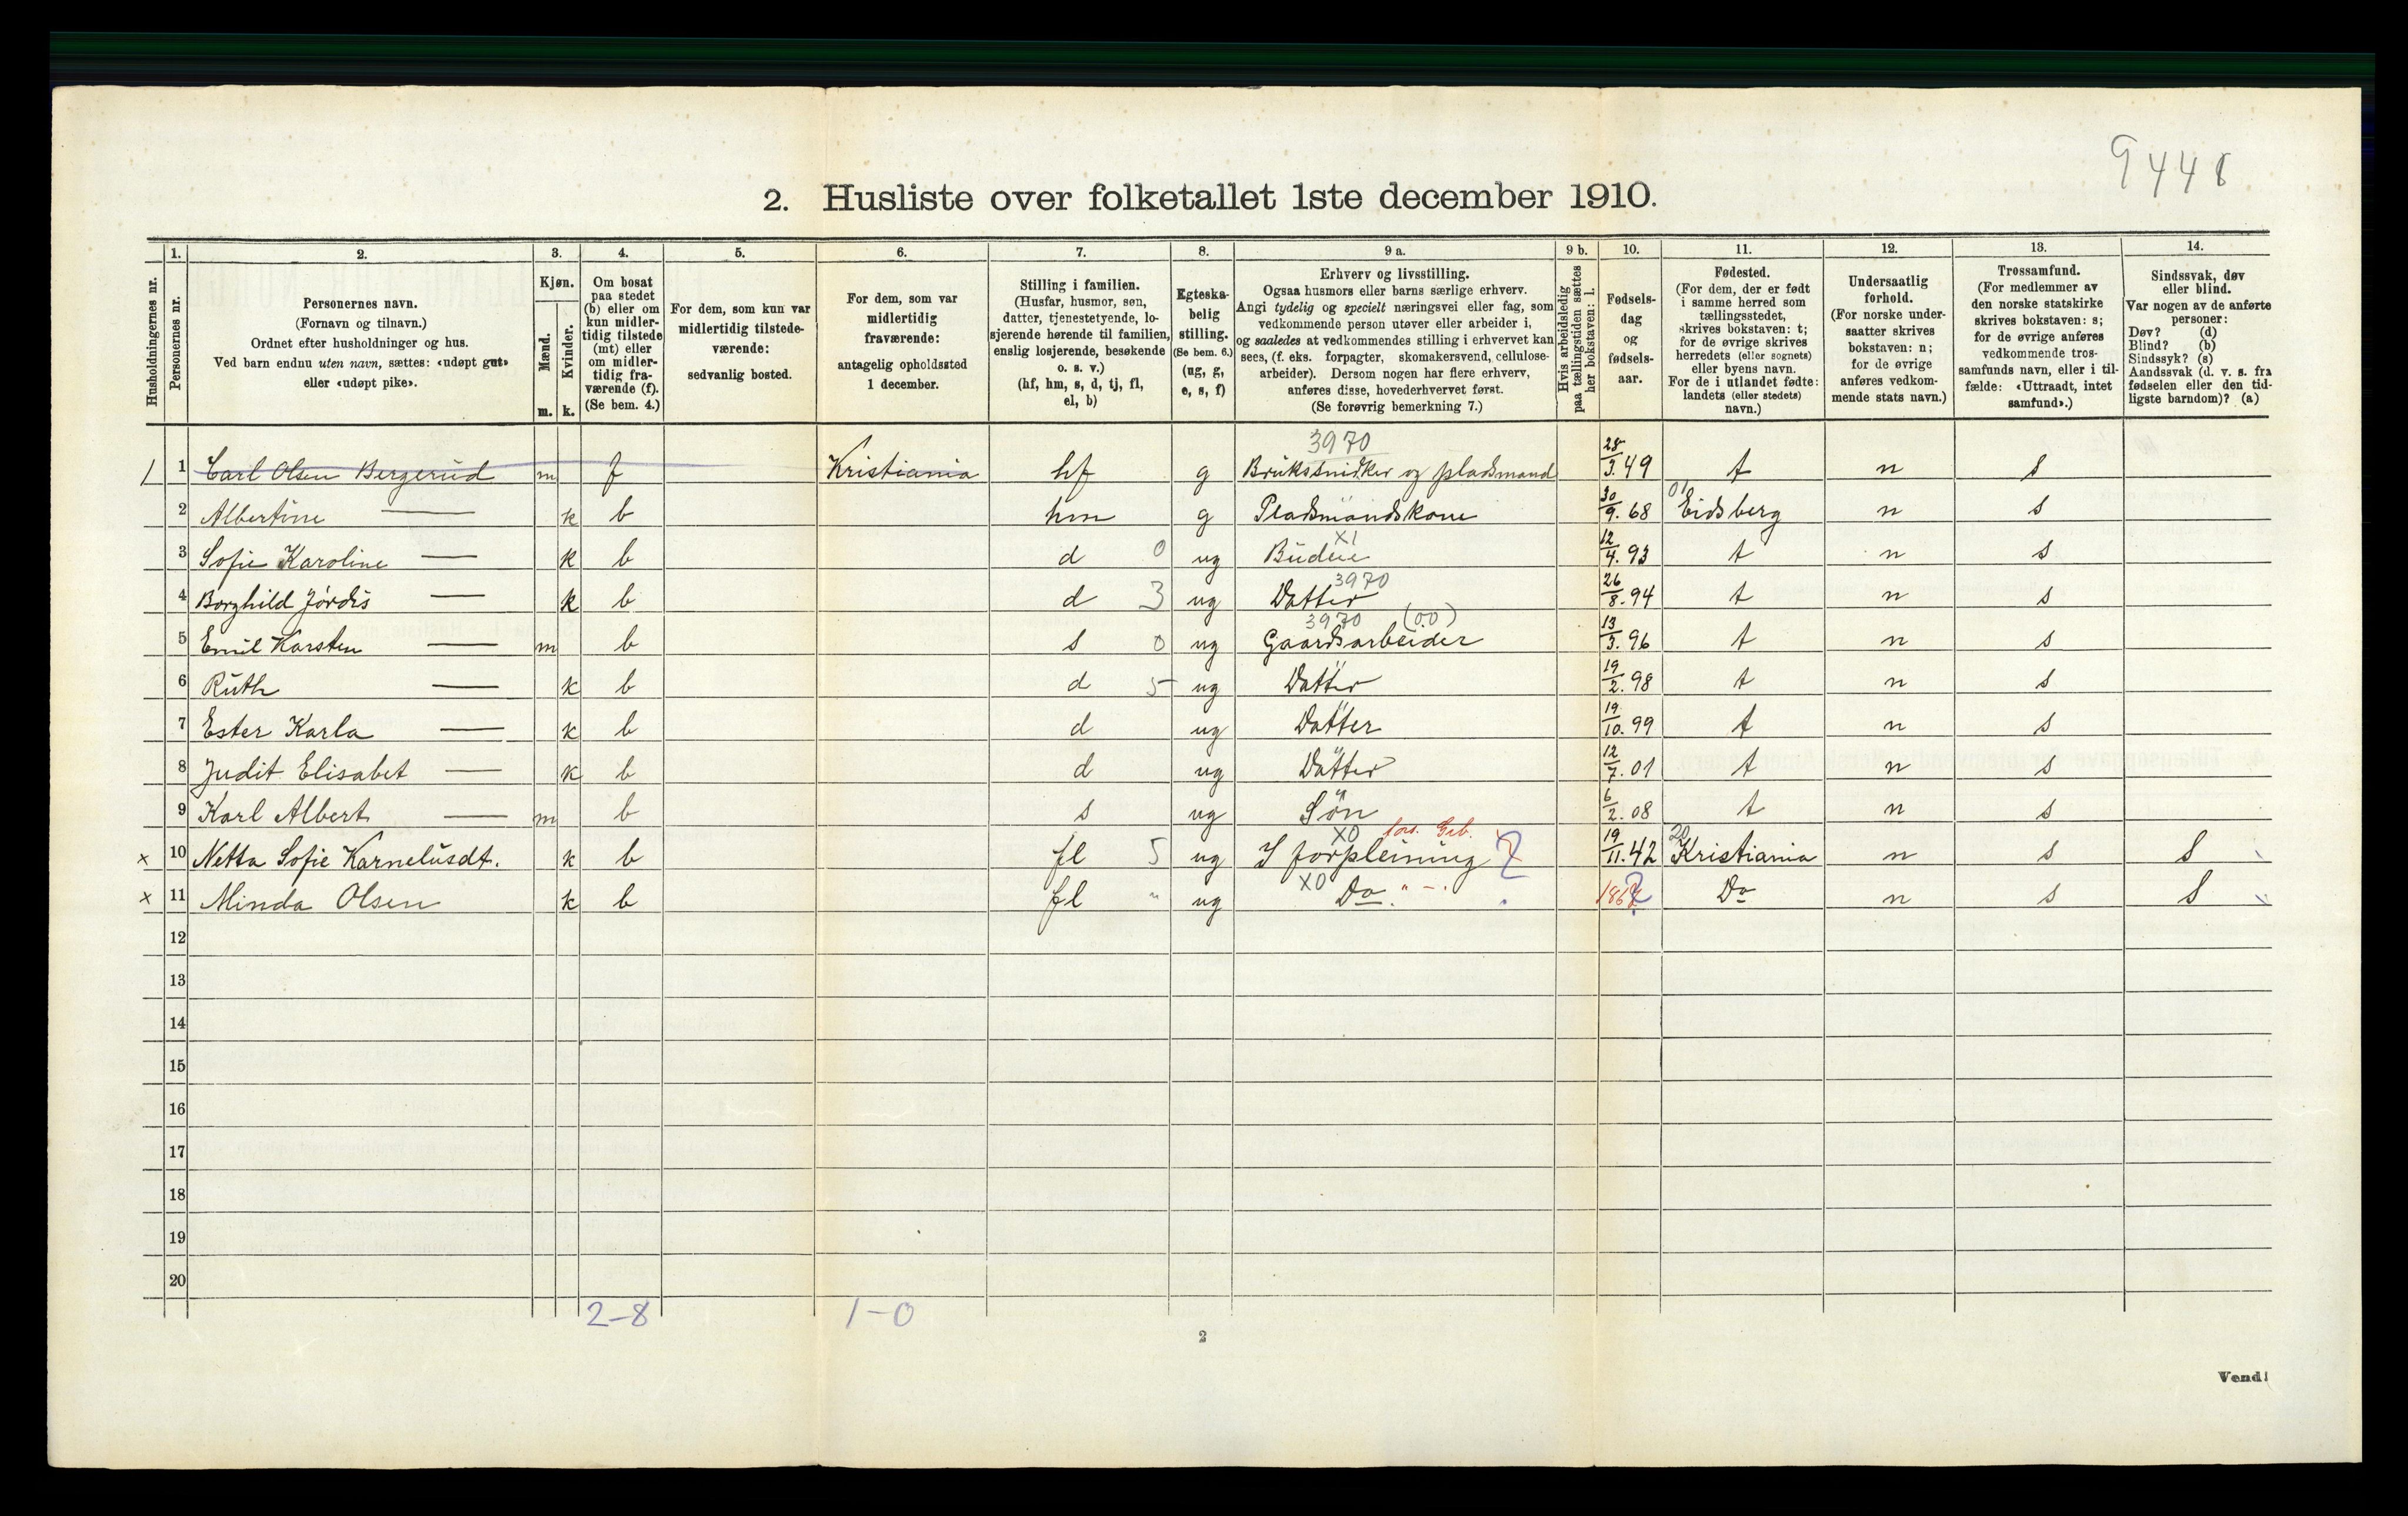 9448
2. Husliste over folketallet 1ste december 1910.
Husholdningernes nr.
1. Personernes nr.
2. Personernes navn.
(Fornavn og tilnavn.)
Ordnet efter husholdninger og hus.
Ved barn endnu uten navn, sættes: «udøpt gut»
eller «udøpt pike».
3. Kjøn.
Mænd. m.
Kvinder. k.
4. Om bosat
paa stedet
(b) eller om
kun midler-
tidig tilstede
(mt) eller
om midler-
tidig fra-
værende (f).
(Se bem. 4.)
5. For dem, som kun var
midlertidig tilstede-
værende:
sedvanlig bosted.
6. For dem, som var
midlertidig
fraværende:
antagelig opholdssted
1 december.
7. Stilling i familien.
(Husfar, husmor, søn,
datter, tjenestetyende, lo-
sjerende hørende til familien,
enslig losjerende, besøkende
o. s. v.)
(hf, hm, s, d, tj, fl,
el, b)
8. Egteska-
belig
stilling.
(Se bem. 6.)
(ug, g,
e, s, f)
9 a. Erhverv og livsstilling.
Ogsaa husmors eller barns særlige erhverv.
Angi tydelig og specielt næringsvei eller fag, som
vedkommende person utøver eller arbeider i,
og saaledes at vedkommendes stilling i erhvervet kan
sees, (f. eks. forpagter, skomakersvend, cellulose-
arbeider). Dersom nogen har flere erhverv,
anføres disse, hovederhvervet først.
(Se forøvrig bemerkning 7.)
9 b. Hvis arbeidsledig
paa tællingstiden sættes
her bokstaven: l.
10. Fødsels-
dag
og
fødsels-
aar.
11. Fødested.
(For dem, der er født
i samme herred som
tællingsstedet,
skrives bokstaven: t;
for de øvrige skrives
herredets (eller sognets)
eller byens navn.
For de i utlandet fødte:
landets (eller stedets)
navn.)
12. Undersaatlig
forhold.
(For norske under-
saatter skrives
bokstaven: n;
for de øvrige
anføres vedkom-
mende stats navn.)
13. Trossamfund.
(For medlemmer av
den norske statskirke
skrives bokstaven: s;
for de øvrige anføres
vedkommende tros-
samfunds navn, eller i til-
fælde: «Uttraadt, intet
samfund».)
14. Sindssvak, døv
eller blind.
Var nogen av de anførte
personer:
Døv? (d)
Blind? (b)
Sindssyk? (s)
Aandssvak (d. v. s. fra
fødselen eller den tid-
ligste barndom)? (a)
3970
1 1 Carl Olsen Bergerud m f Kristiania hf g Brukssnidker og pladsmand 28/3.49 t n s
2 Albertine — k b hm g Pladsmandskone 30/9.68 01 Eidsberg n s
3 Sofie Karoline — k b d 0 ug Budeie X1 12/4.93 t n s
4 Borghild Jørdis — k b d 3 ug Datter 3970 26/8.94 t n s
5 Emil Karsten — m b s 0 ug Gaardsarbeider 3970 (00) 13/3.96 t n s
6 Ruth — k b d 5 ug Datter 19/2.98 t n s
7 Ester Karla — k b d ug Datter 19/10.99 t n s
8 Judit Elisabet — k b d ug Datter 12/7.01 t n s
9 Karl Albert — m b s ug Søn 6/2.08 t n s
x 10 Netta Sofie Karneliusdt. k b fl 5 ug X0 I forpleining ? 19/11.42 20 Kristiania n s S
x 11 Minda Olsen k b fl " ug X0 Do " - ? Do n s S
12
13
14
15
16
17
18
19
20
2-8 1-0
2
Vend!